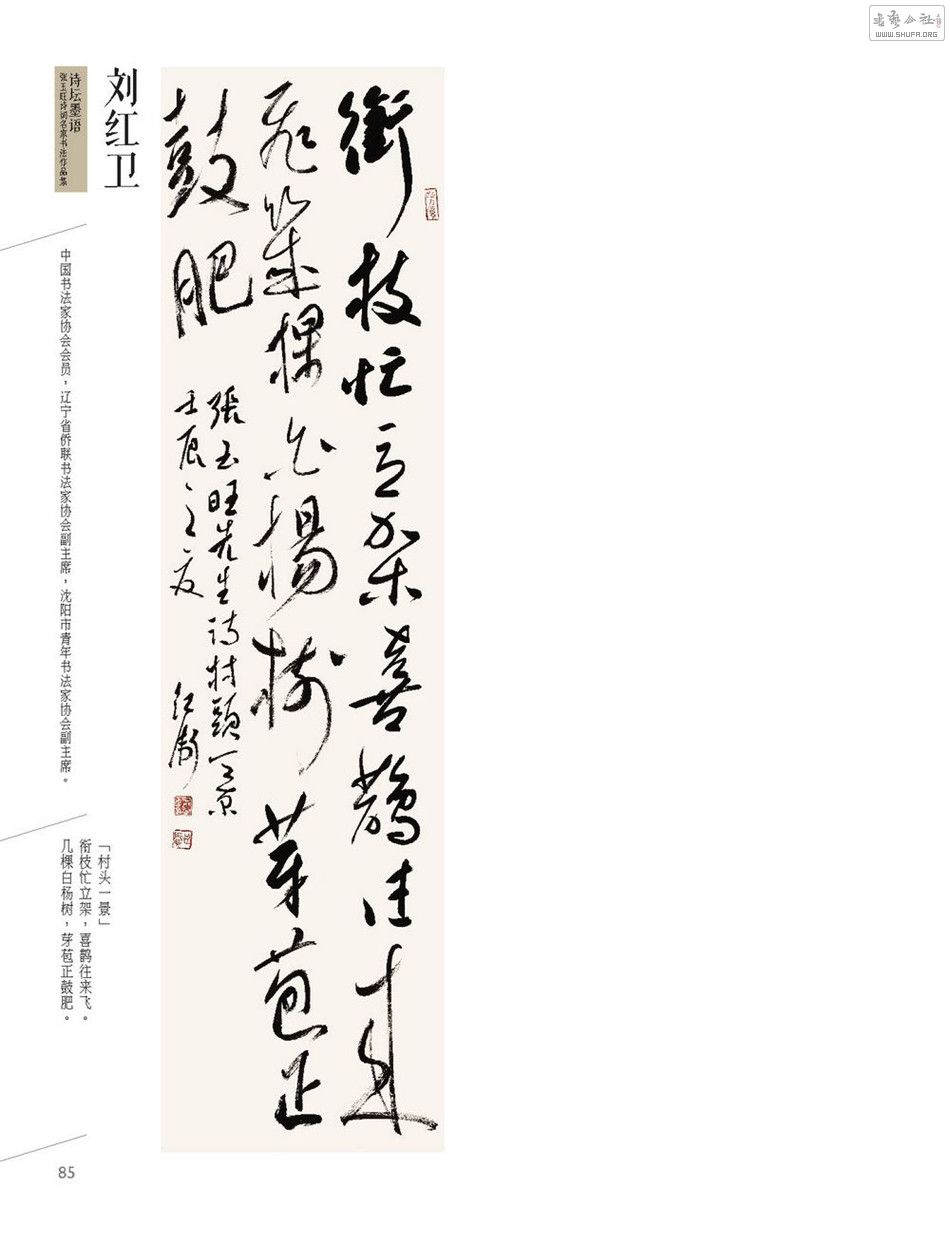 書藝公社
WWW.SHUFA.ORG
銜枝忙立架喜鵲往来
飛幾棵白楊樹芽苞正
鼓肥
張玉旺先生诗村頭一景
壬辰之夏 红衛
刘红卫
诗坛墨语
张玉旺诗词名家书法作品集
中国书法家协会会员，辽宁省侨联书法家协会副主席，沈阳市青年书法家协会副主席。
「村头一景」
衔枝忙立架，喜鹊往来飞。
几棵白杨树，芽苞正鼓肥。
85